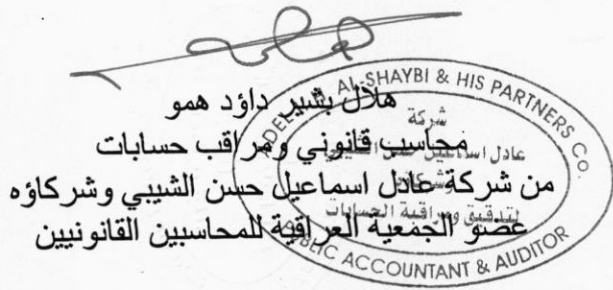 هلال بشير داؤد همو
محاسب قانوني ومراقب حسابات
من شركة عادل اسماعيل حسن الشيبي وشركاؤه
عضو الجمعية العراقية للمحاسبين القانونيين
AL-SHAYBI & HIS PARTNERS CO.
شركة
عادل اسماعيل حسن
لتدقيق ومراقبة الحسابات
PUBLIC ACCOUNTANT & AUDITOR